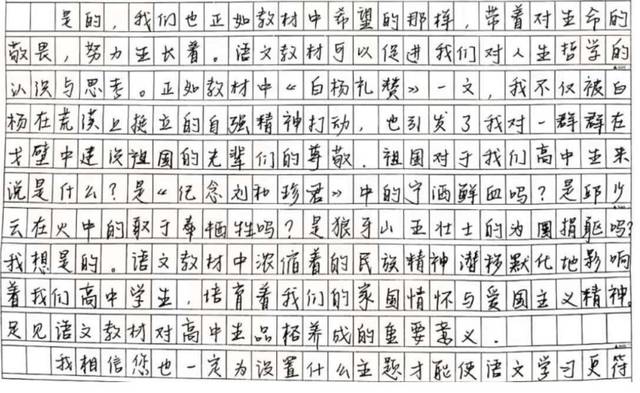 是的，我们也正如教材中希望的那样，带着对生命的
敬畏，努力生长着。语文教材可以促进我们对人生哲学的
认识与思考。正如教材中《白杨礼赞》一文，我不仅被白
杨在荒漠上挺立的自强精神打动，也引发了我对一群群在
戈壁中建设祖国的先辈们的尊敬．祖国对于我们高中生来
说是什么？是《纪念刘和珍君》中的宁洒鲜血吗？是邱少
云在火中的敢于奉牺牲吗？是狼牙山五壮士的为国捐躯吗？
我想是的。语文教材中浓缩着的民族精神潜移默化地影响
着我们高中学生，培育着我们的家国情怀与爱国主义精神，
足见语文教材对高中生品格养成的重要意义．
我相信您也一定为设置什么主题才能使语文学习更符